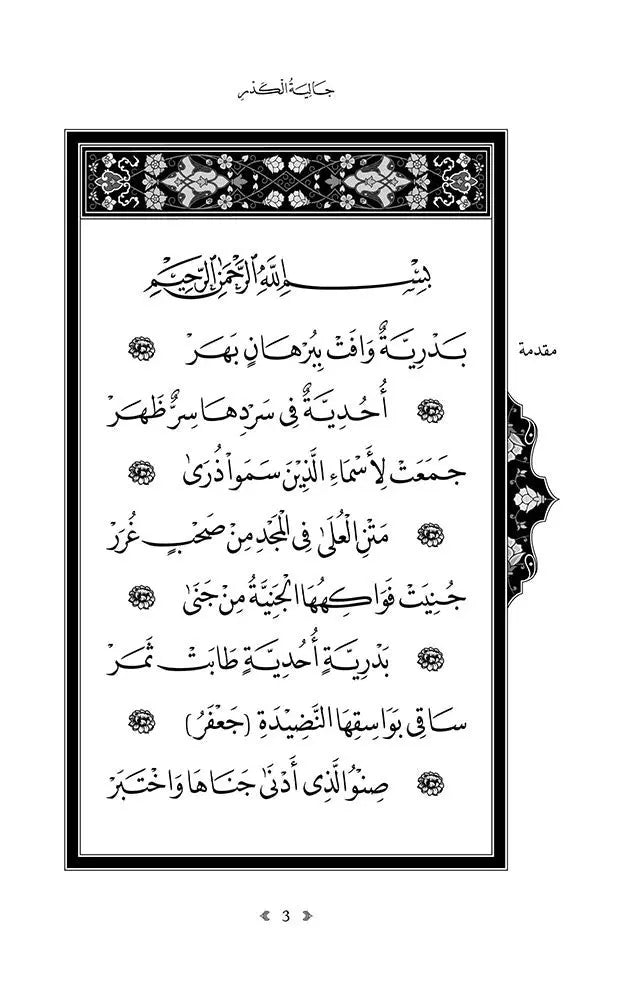 جَالِيَةُ الْكَدَرِ
بِسْمِ اللَّهِ الرَّحْمَنِ الرَّحِيمِ
مقدمة
بَدْرِيَّةٌ وَافَتْ بِبُرْهَانٍ بَهَرْ
أُحُدِيَّةٌ فِي سَرْدِهَا سِرٌّ ظَهَرْ
جَمَعَتْ لِأَسْمَاءِ الَّذِينَ سَمَواْ ذُرَىٰ
مَتْنِ الْعُلَىٰ فِي الْمَجْدِ مِنْ صَحْبٍ غُرَرْ
جُنِيَتْ فَوَاكِهُهَا الْجَنِيَّةُ مِنْ جَنَىٰ
بَدْرِيَّةٍ أُحُدِيَّةٍ طَابَتْ ثَمَرْ
سَاقِي بَوَاسِقِهَا النَّضِيدَةِ (جَعْفَرُ)
صِنْوُ الَّذِي أَدْنَىٰ جَنَاهَا وَاخْتَبَرْ
3